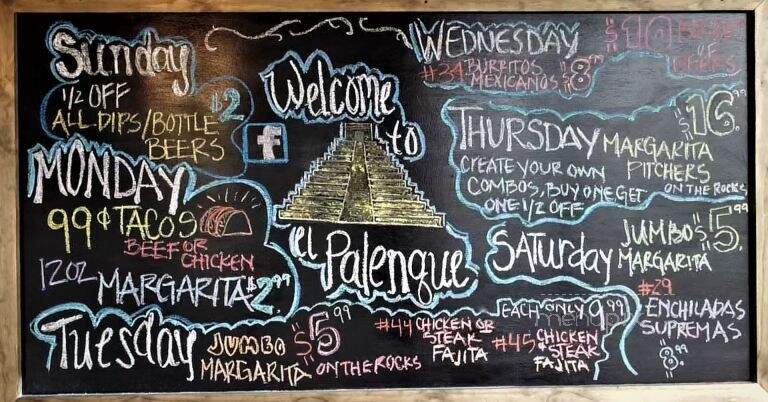 Sunday
1/2 OFF
ALL DIPS/BOTTLE
BEERS
$2
MONDAY
99¢ TACOS
BEEF OR
CHICKEN
12OZ MARGARITA $2.99
Tuesday
JUMBO
MARGARITA
$5.99
ON THE ROCKS
#44 CHICKEN OR
STEAK
FAJITA
EACH ONLY 9.99
#45 CHICKEN
& STEAK
FAJITA
Welcome
to
f
el
Palenque
WEDNESDAY
#34 BURRITOS
MEXICANOS
$10
OF
BEERS
THURSDAY
CREATE YOUR OWN
COMBOS, BUY ONE GET
ONE 1/2 OFF
MARGARITA
PITCHERS
$16.99
ON THE ROCKS
SATURDAY
JUMBO
MARGARITA
$5.99
#29
ENCHILADAS
SUPREMAS
$8.99